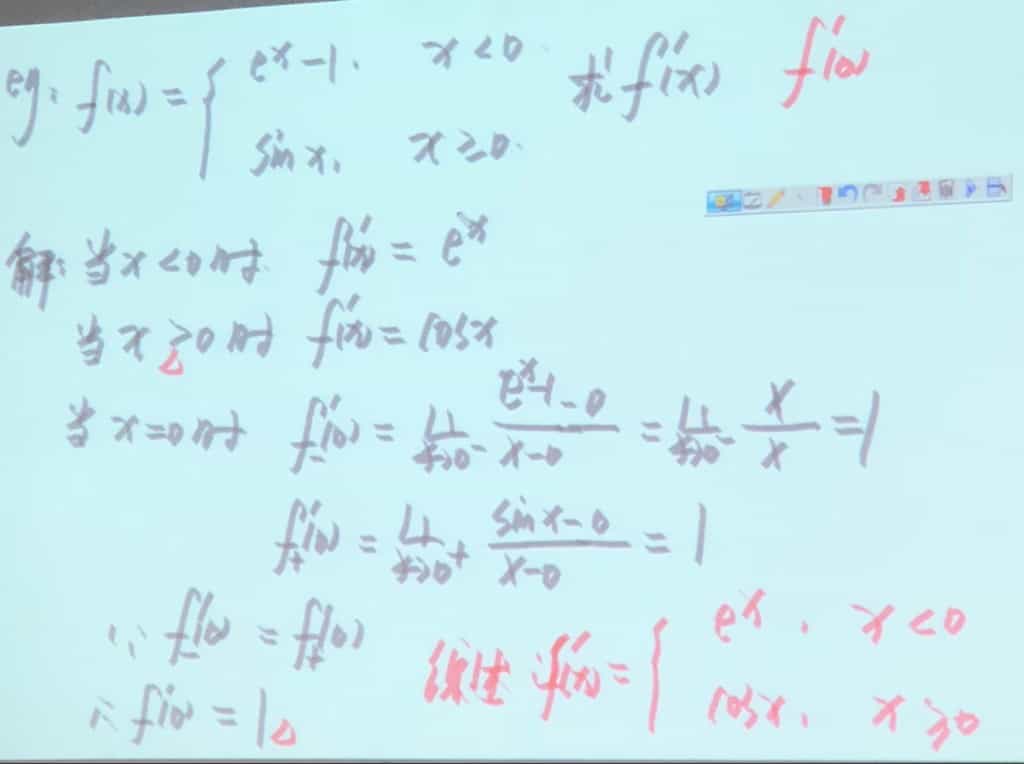 eg: f(x) = { e^x-1, x<0. 求 f'(x) f'(0)
sin x, x≥0.
解: 当 x<0 时 f'(x) = e^x
当 x>0 时 f'(x) = cosx
当 x=0 时 f'_-(0) = lim_{x→0^-} (e^x-1-0)/(x-0) = lim_{x→0^-} x/x = 1
f'_+(0) = lim_{x→0^+} (sin x-0)/(x-0) = 1
∵ f'_-(0) = f'_+(0)
∴ f'(0) = 1
综上 f'(x) = { e^x, x<0
cosx, x≥0